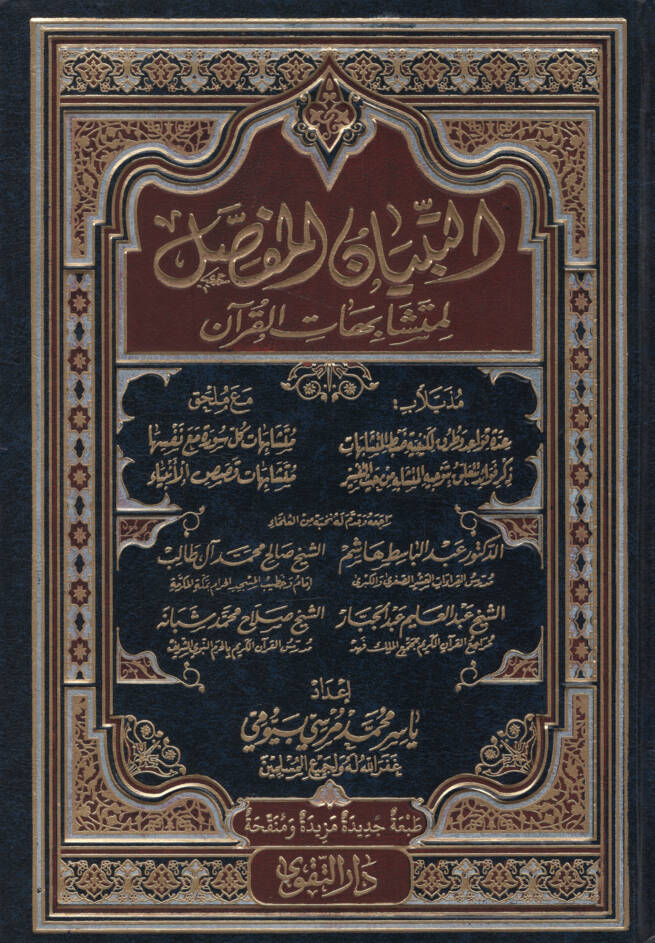 التبيان المفصل
لمتشابهات القرآن
مذيلاً ب:
عدة قواعد وطرق لكيفية ضبط المتشابهات
ذكر فوائد تتعلق بتوجيه المتشابه من حيث التفسير
مع ملحق
متشابهات كل سورة مع نفسها
متشابهات قصص الأنبياء
راجعه وقدم له نخبة من العلماء
الدكتور عبد الباسط هاشم
مدرس القراءات العشر الصغرى والكبرى
الشيخ صالح محمد آل طالب
إمام وخطيب المسجد الحرام بمكة المكرمة
الشيخ عبد العليم عبد الجبار
مراجع القرآن الكريم بمجمع الملك فهد
الشيخ صلاح محمد شبانه
مدرس القرآن الكريم بالحرم النبوي الشريف
إعداد
ياسر محمد مرسي بيومي
غفر الله له ولجميع المسلمين
طبعة جديدة مزيدة ومنقحة
دار التقوى